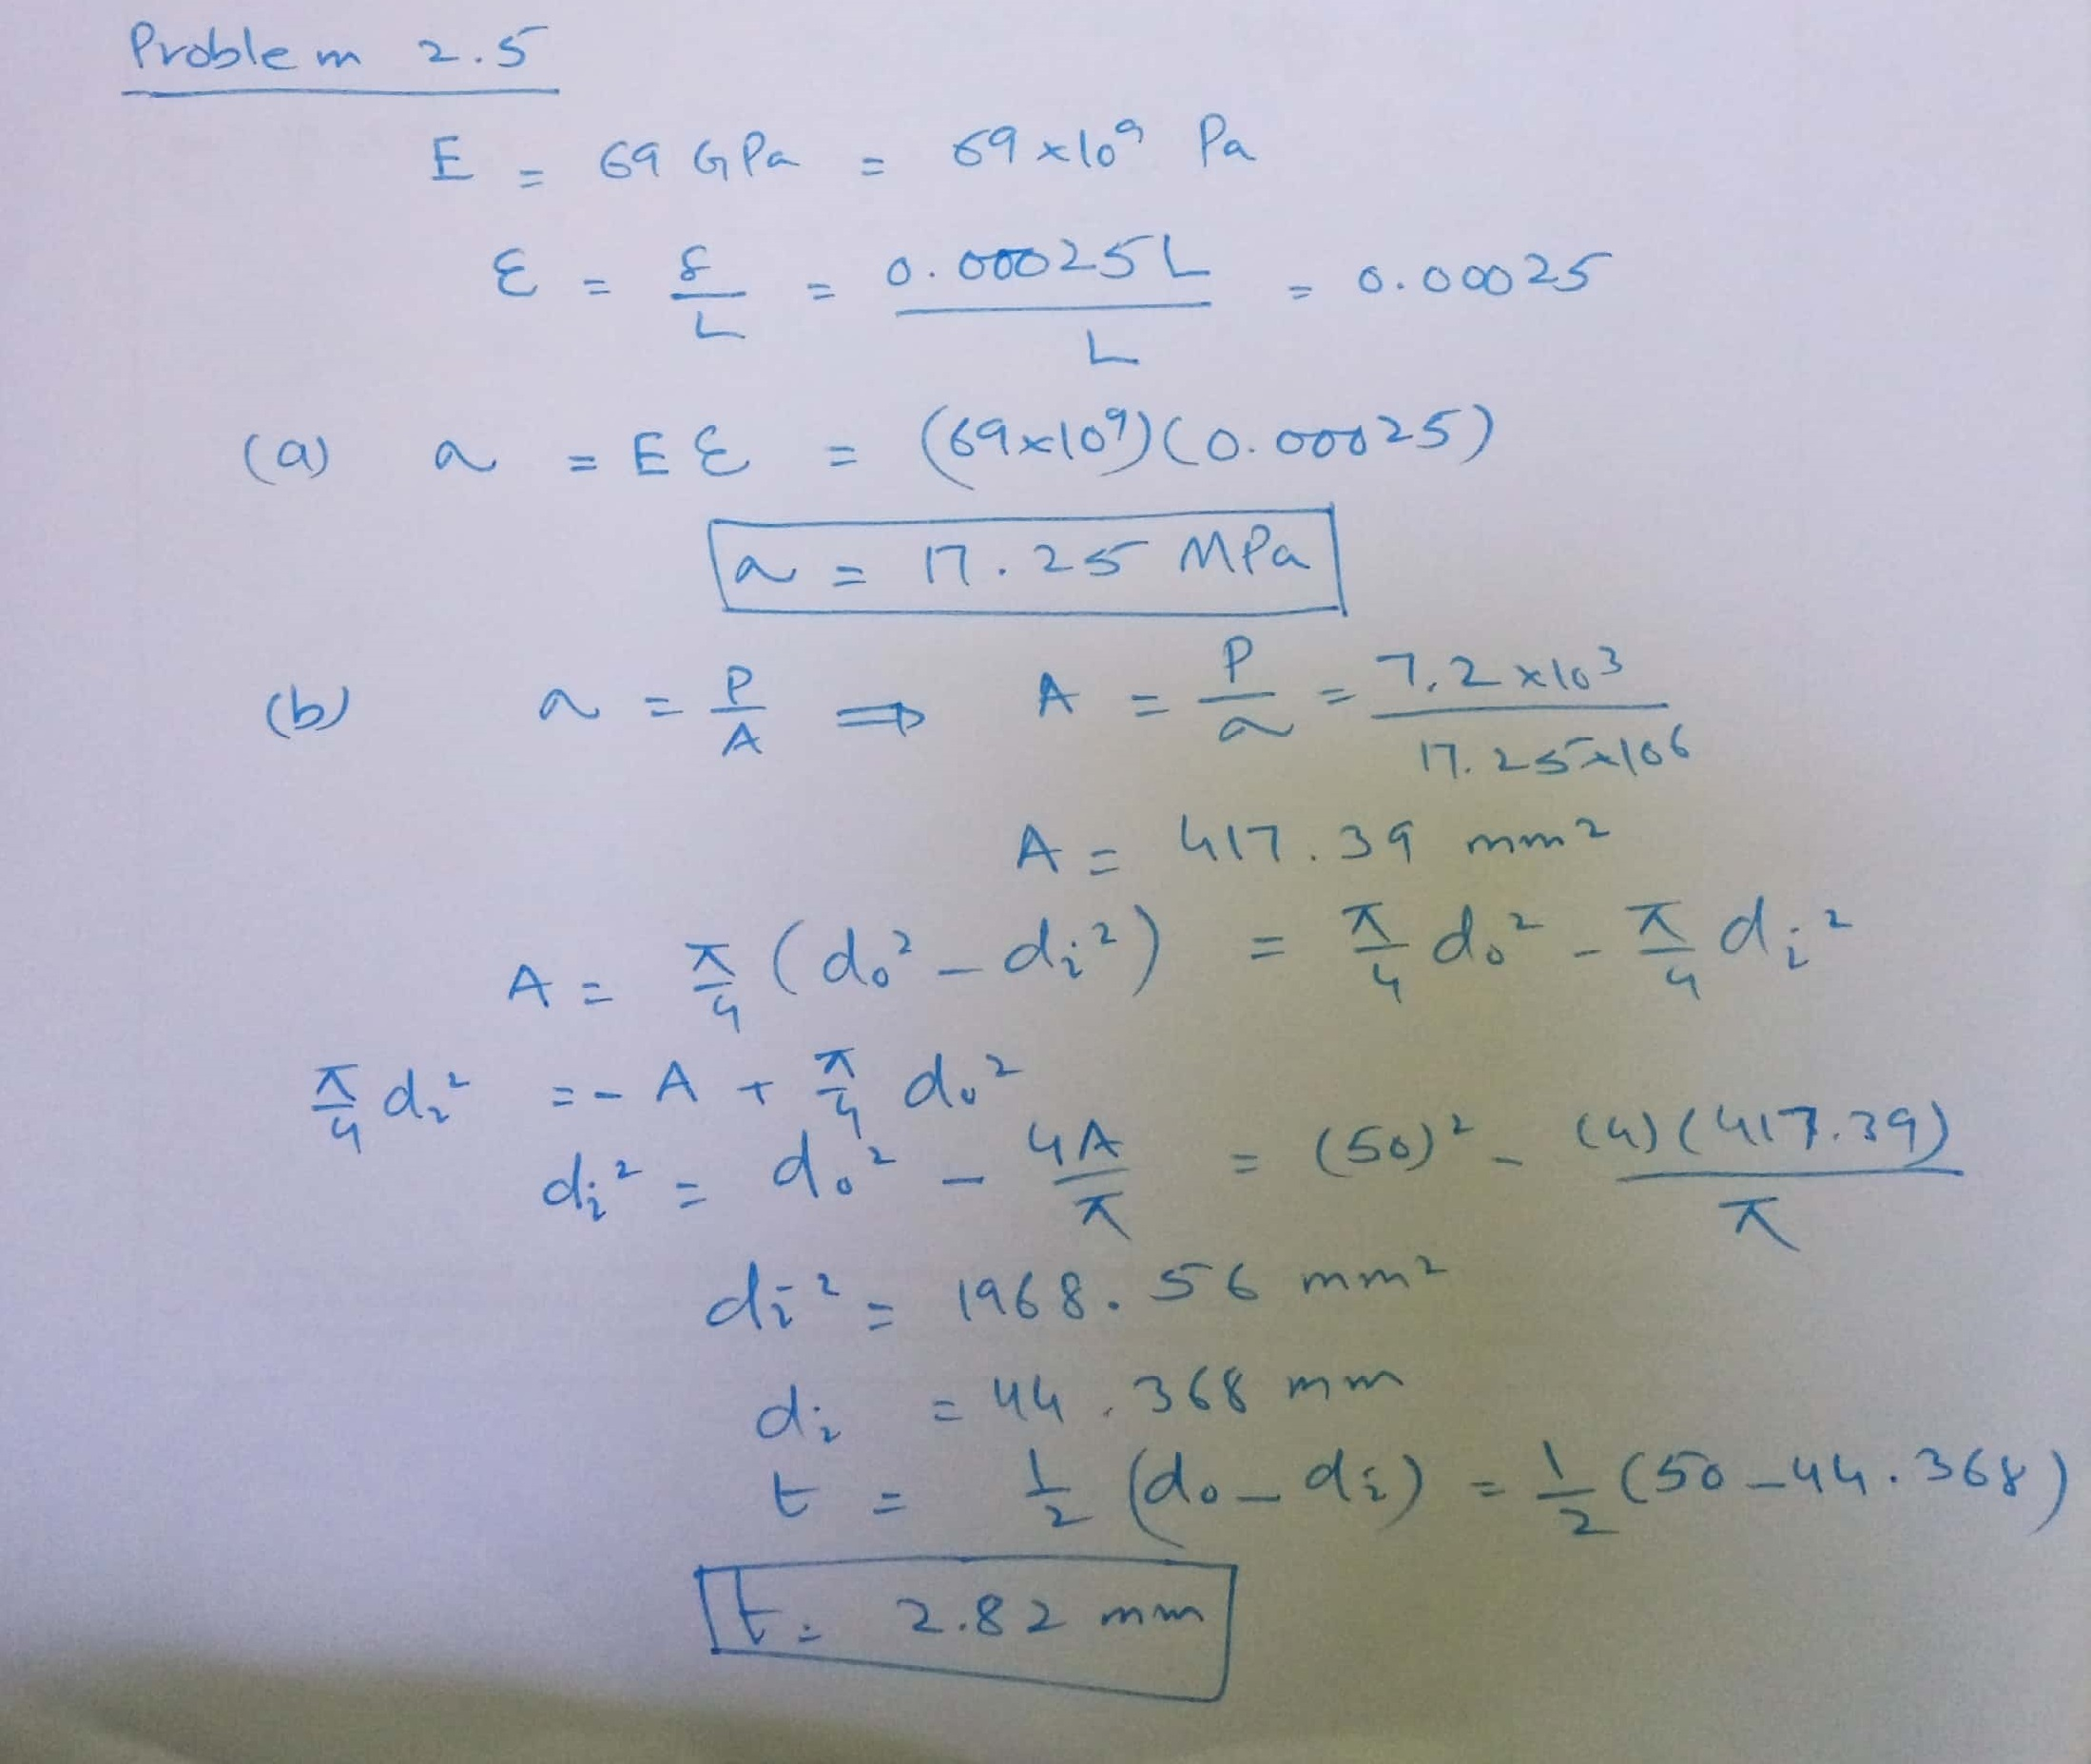 Problem 2.5
E = 69 GPa = 69 x 10⁹ Pa
ε = δ/L = 0.00025L/L = 0.00025
(a) σ = Eε = (69x10⁹)(0.00025)
σ = 17.25 MPa
(b) σ = P/A ⇒ A = P/σ = 7.2 x 10³/17.25 x 10⁶
A = 417.39 mm²
A = π/4 (d₀² - dᵢ²) = π/4 d₀² - π/4 dᵢ²
π/4 dᵢ² = - A + π/4 d₀²
dᵢ² = d₀² - 4A/π = (50)² - (4)(417.39)/π
dᵢ² = 1968.56 mm²
dᵢ = 44.368 mm
t = 1/2 (d₀ - dᵢ) = 1/2 (50 - 44.368)
t = 2.82 mm